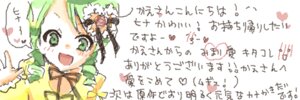 かえさんこんにちは!
ヒナかわいい!お持ち帰りしたい
ですよー
かえさんからの みまり康 キタコレ!
ありがとうございます!!かえさんへ
愛をこめて
次は原作どおり明るく元気なカナかきたいです。